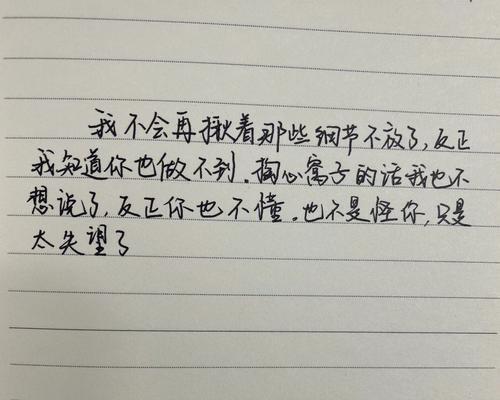 我不会再揪着那些细节不放了,反正
我知道你也做不到.掏心窝子的话我也不
想说了,反正你也不懂.也不是怪你,只是
太失望了